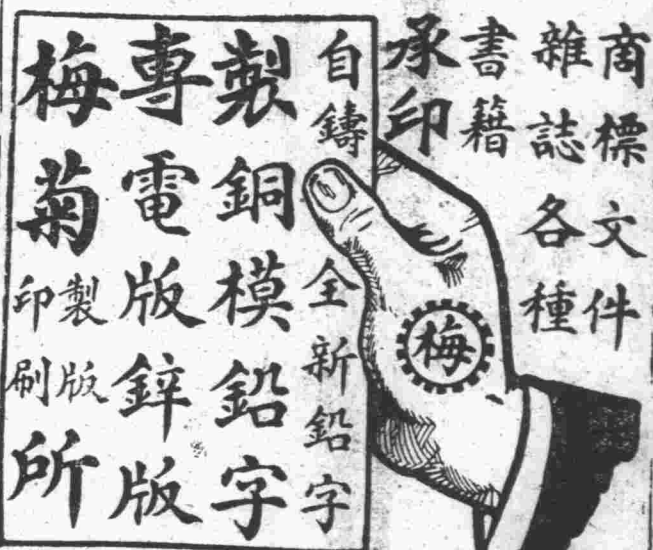 商標文件
雜誌各種
書籍
承印
梅
自鑄全新鉛字
製銅模鉛字
專電版鋅版
梅菊
製版
印刷
所